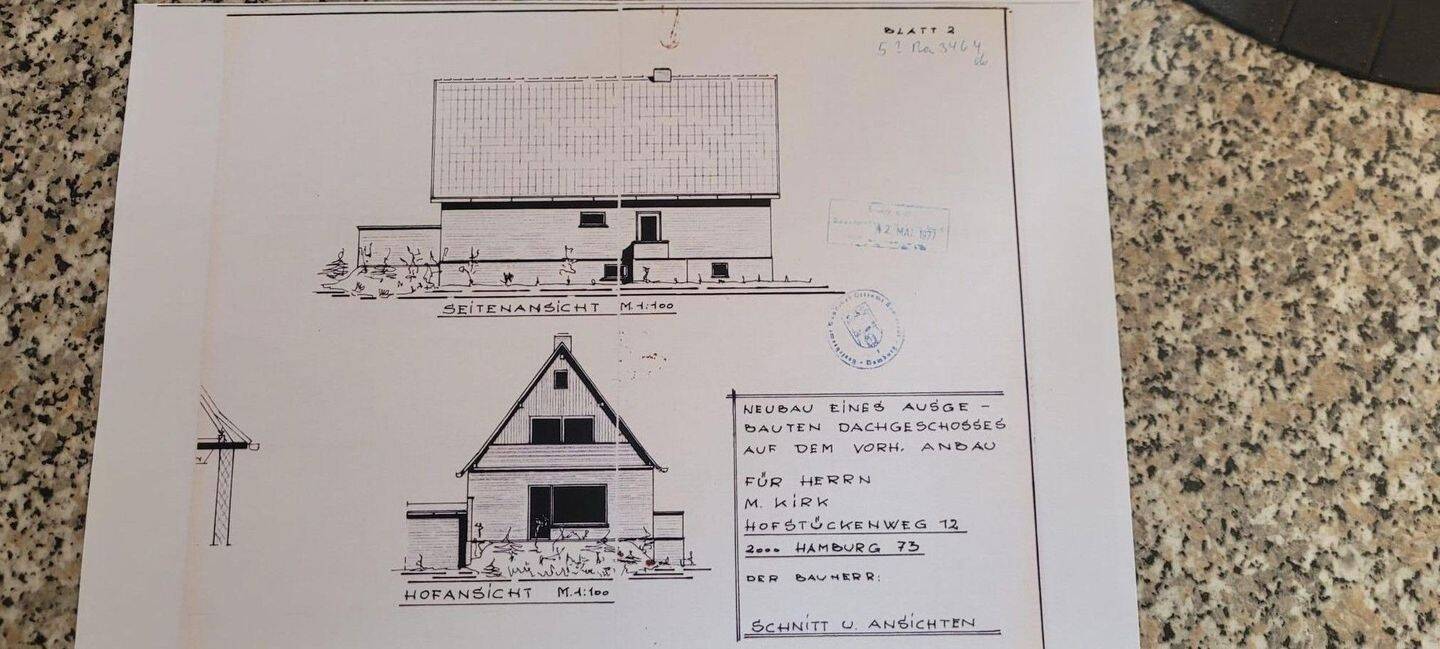 BLATT 2
12. MAI 1977
SEITENANSICHT M. 1:100
Hamburg
NEUBAU EINES AUSGE -
BAUTEN DACHGESCHOSSES
AUF DEM VORH. ANBAU
FÜR HERRN
M. KIRK
HOFSTÜCKENWEG 12
2000 HAMBURG 73
DER BAUHERR:
SCHNITT U. ANSICHTEN
HOFANSICHT M. 1:100